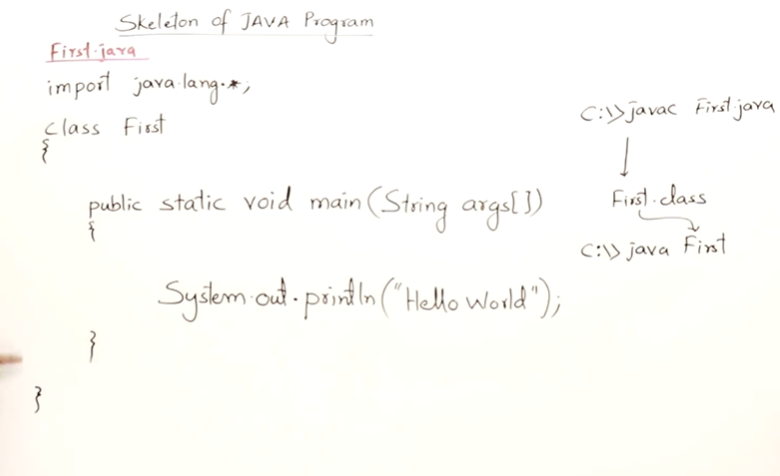 Skeleton of JAVA Program
First.java
import java.lang.*;
class First
{
public static void main(String args[])
{
System.out.println("Hello World");
}
}
C:\>javac First.java
First.class
C:\>java First